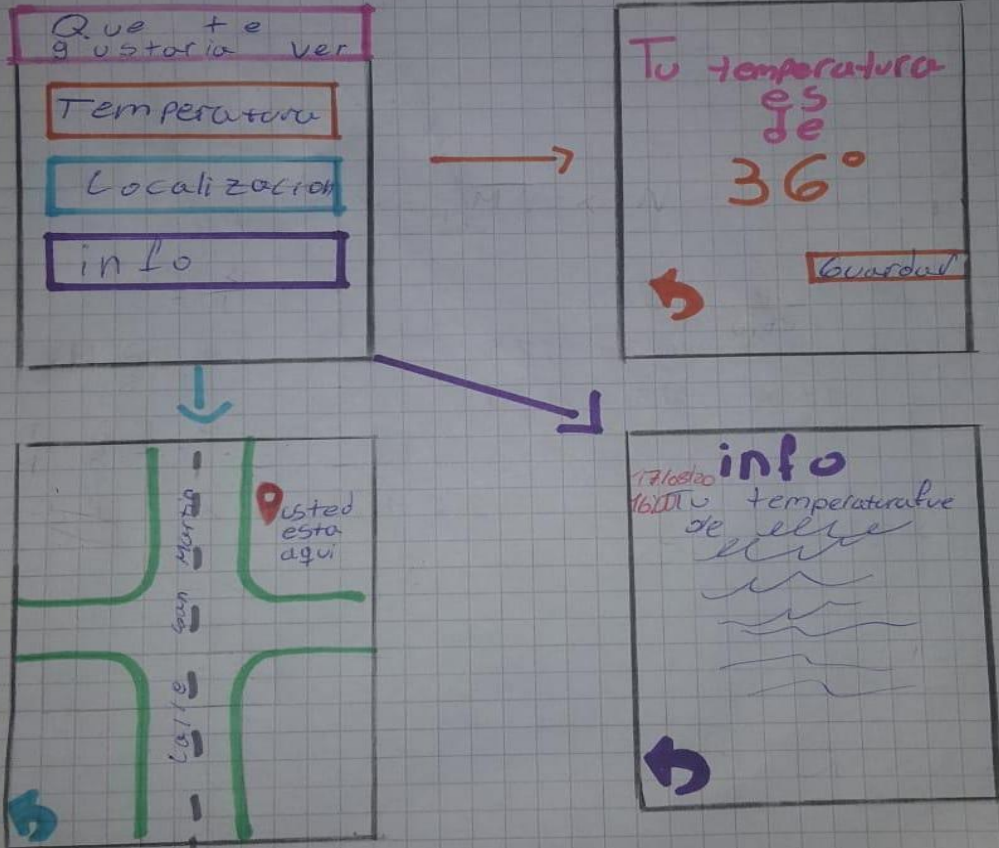 Que te
gustaria ver
Temperatura
Localizacion
info
Tu temperatura
es
de
36°
Guardar
usted
esta
aqui
Calle San Martin
info
17/08/20
16:00 Tu temperatura fue
de